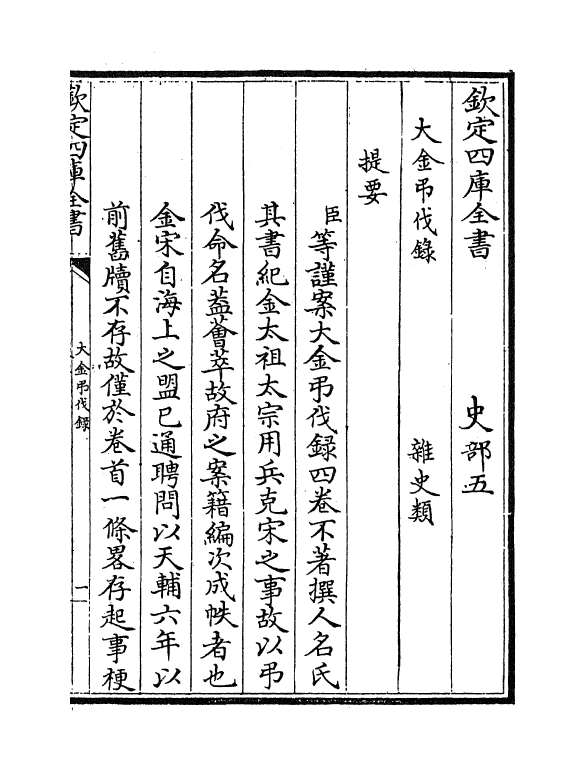 欽定四庫全書　史部五
大金弔伐錄　雜史類
提要
臣等謹案大金弔伐録四卷不著撰人名氏
其書紀金太祖太宗用兵克宋之事故以弔
伐命名葢薈萃故府之案籍編次成帙者也
金宋自海上之盟已通聘問以天輔六年以
前舊牘不存故僅於卷首一條畧存起事梗
欽定四庫全書　大金弔伐録　一